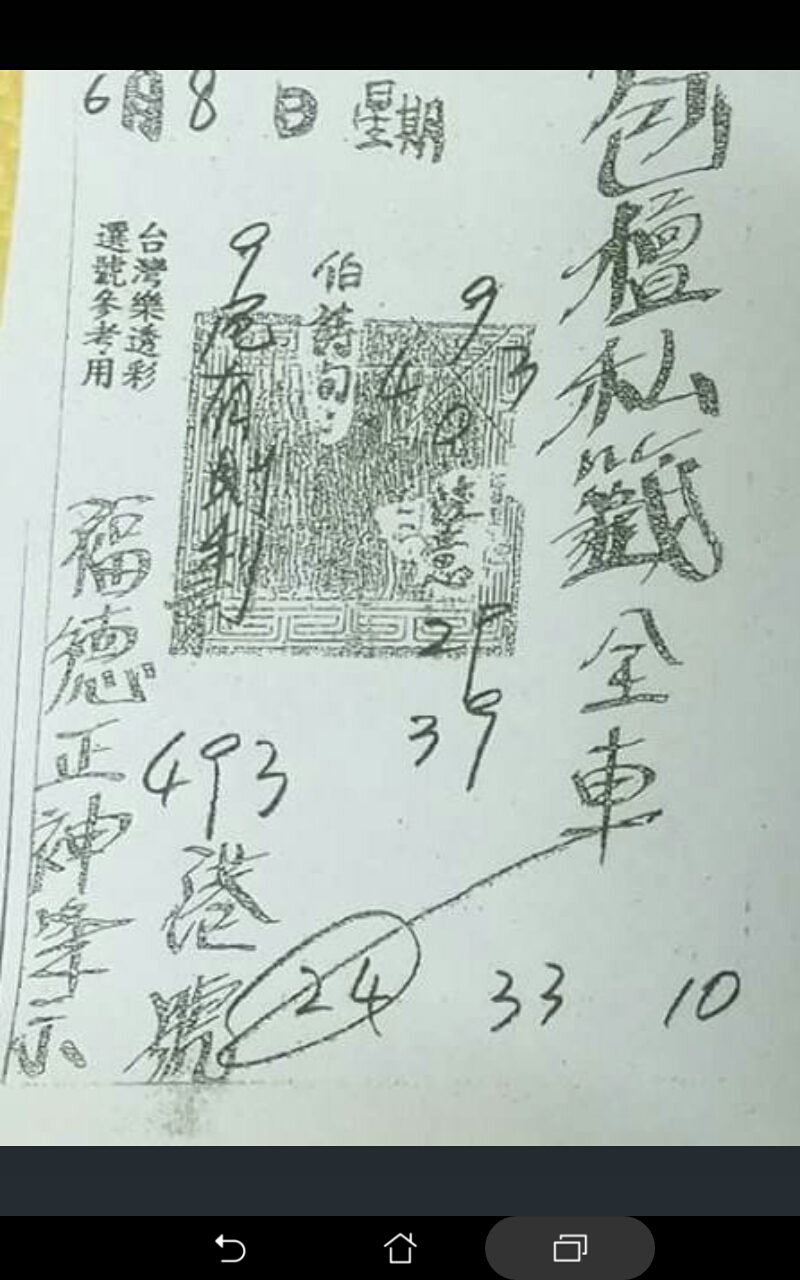 6月8日星期
包壇私籤全車
9
4 3
0
伯詩句:
9尾有財利
台灣樂透彩
選號參考用
29
39
493
港號
福德正神峯示
24 33 10